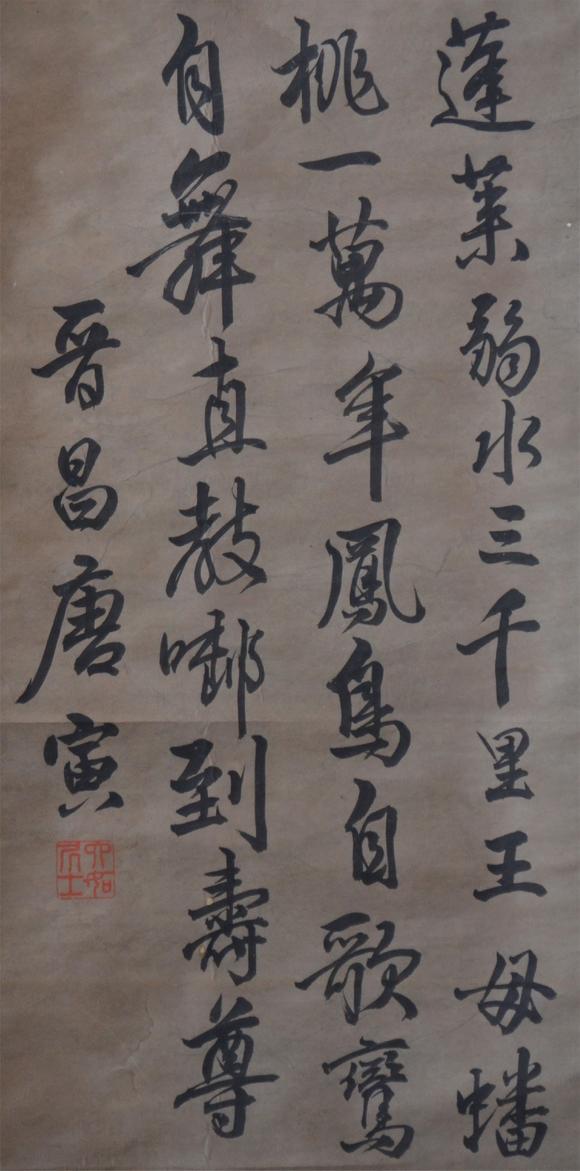 蓬莱弱水三千里王母蟠
桃一萬年鳳鳥自歌鸞
自舞直教啣到壽尊
晋昌唐寅
六如居士